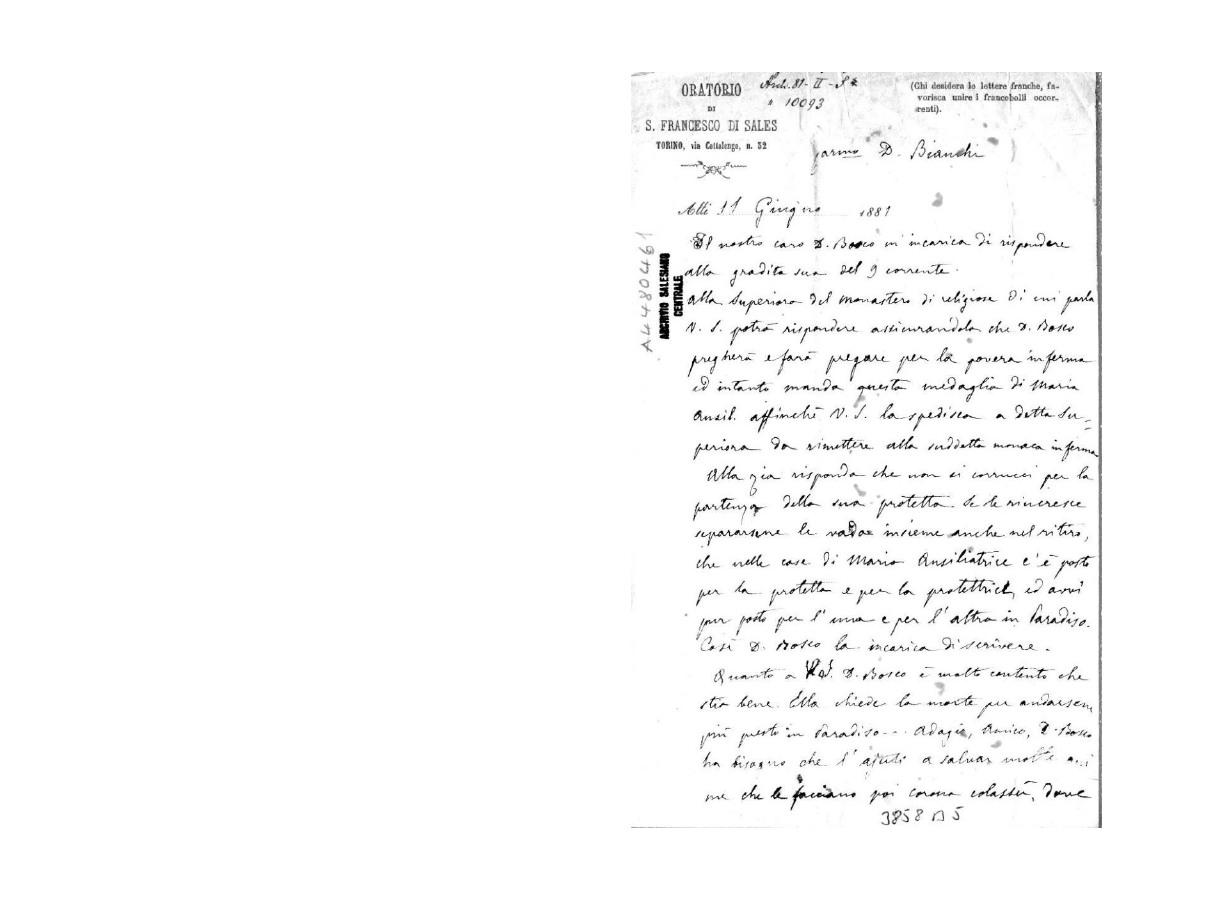 ORATORIO
DI
S. FRANCESCO DI SALES
TORINO, via Cottolengo, n. 32
Arch. 81- II -
10093
(Chi desidera le lettere franche, fa-
vorisca unire i francobolli occor-
renti).
D. Bianchi
Alli 11 Giugno 1881
A4480461
ARCHIVIO SALESIANO
CENTRALE
Il nostro caro D. Bosco m'incarica di rispondere
alla gradita sua del 9 corrente.
Alla Superiora del monastero di religiose di cui parla
V. S. potrà rispondere assicurandola che D. Bosco
pregherà e farà pregare per la povera inferma
ed intanto manda questa medaglia di Maria
Ausil. affinchè V. S. la spedisca a detta Su-
periora da rimettere alla suddetta monaca inferma
Alla zia risponda che non si corrucci per la
partenza della sua protetta. Se le rincresce
separarsene le vada insieme anche nel ritiro,
che nelle case di Maria Ausiliatrice c'è posto
per la protetta e per la protettrice, ed avvi
pur posto per l'una e per l'altra in Paradiso.
Così D. Bosco la incarica di scrivere.
Quanto a V. S. D. Bosco è molto contento che
stia bene. Ella chiede la morte per andarsene
più presto in Paradiso... Adagio, Amico, D. Bosco
ha bisogno che l'ajuti a salvar molte ani
me che le facciano poi corona colassù, dove
3858 B 5